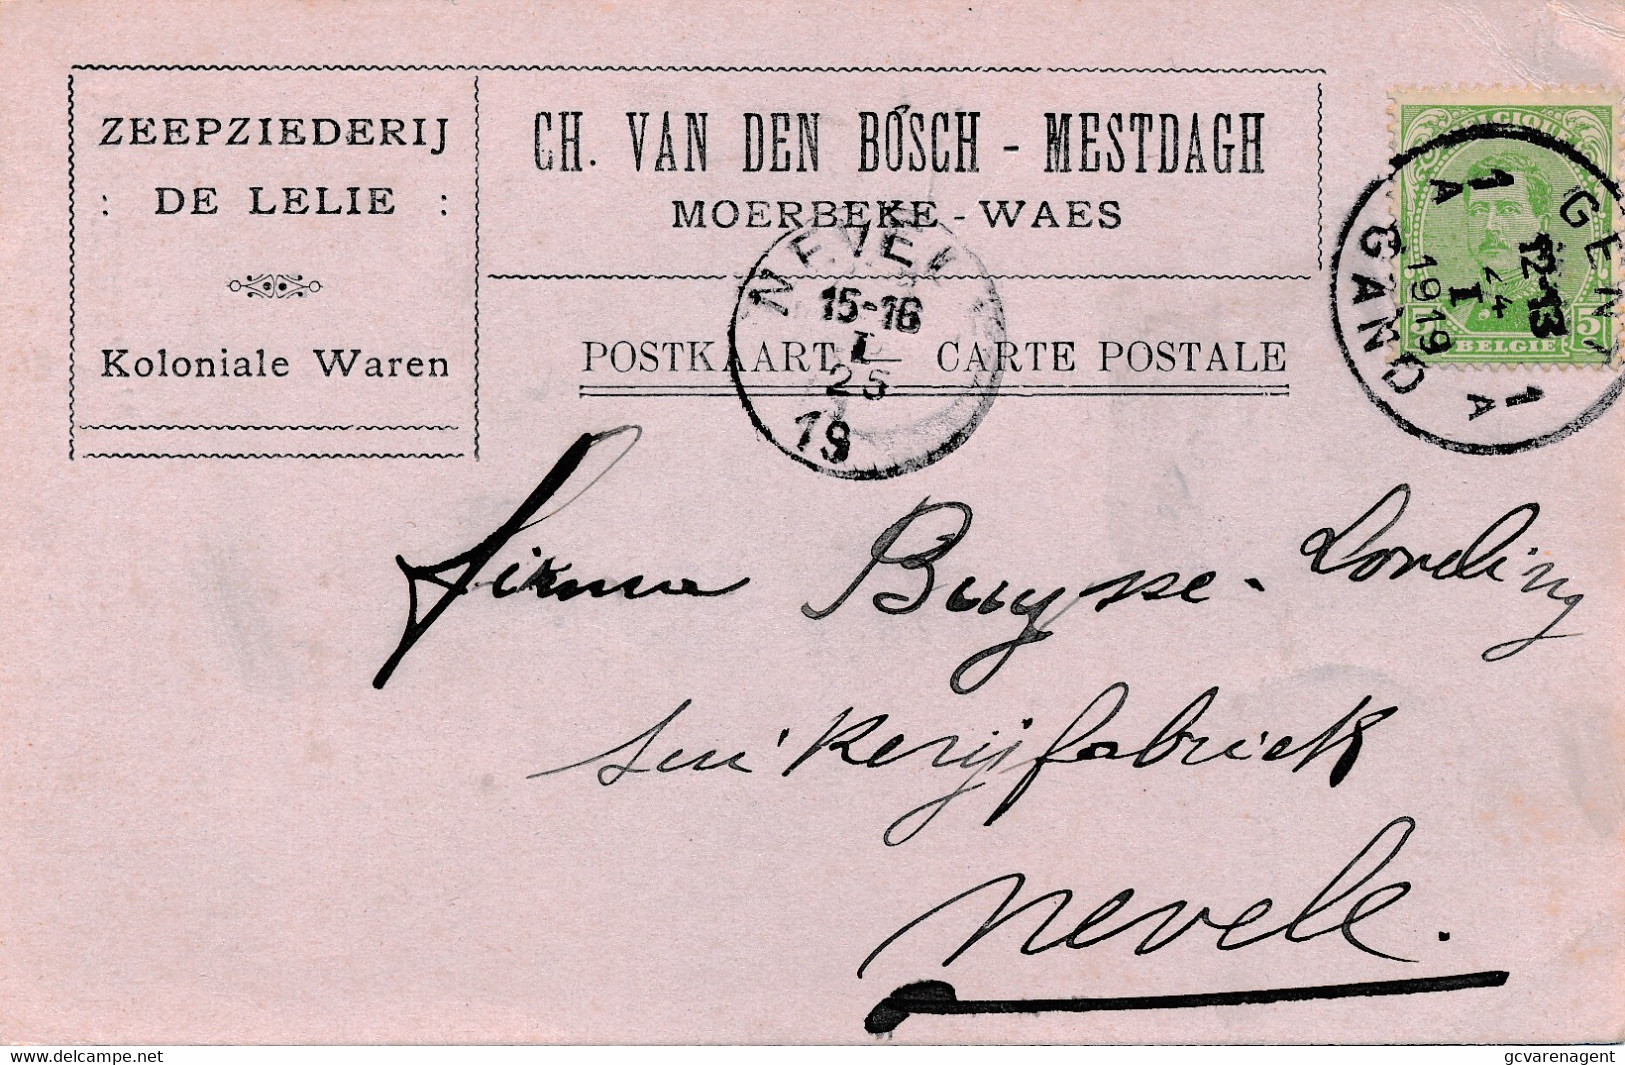 ZEEPZIEDERIJ
: DE LELIE :
Koloniale Waren
CH. VAN DEN BOSCH - MESTDAGH
MOERBEKE - WAES
POSTKAART — CARTE POSTALE
NEVEL
15-16
I
25
19
BELGIQUE
5 5
BELGIE
GENT
1 A
12-13
24
I
1919
1 A
GAND
firma Buysse - Loveling
suikerijfabriek
Nevele.
delcampe.net
gcvarenagent